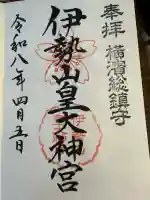 奉拝
横濱総鎮守
伊勢山皇大神宮
令和八年四月五日